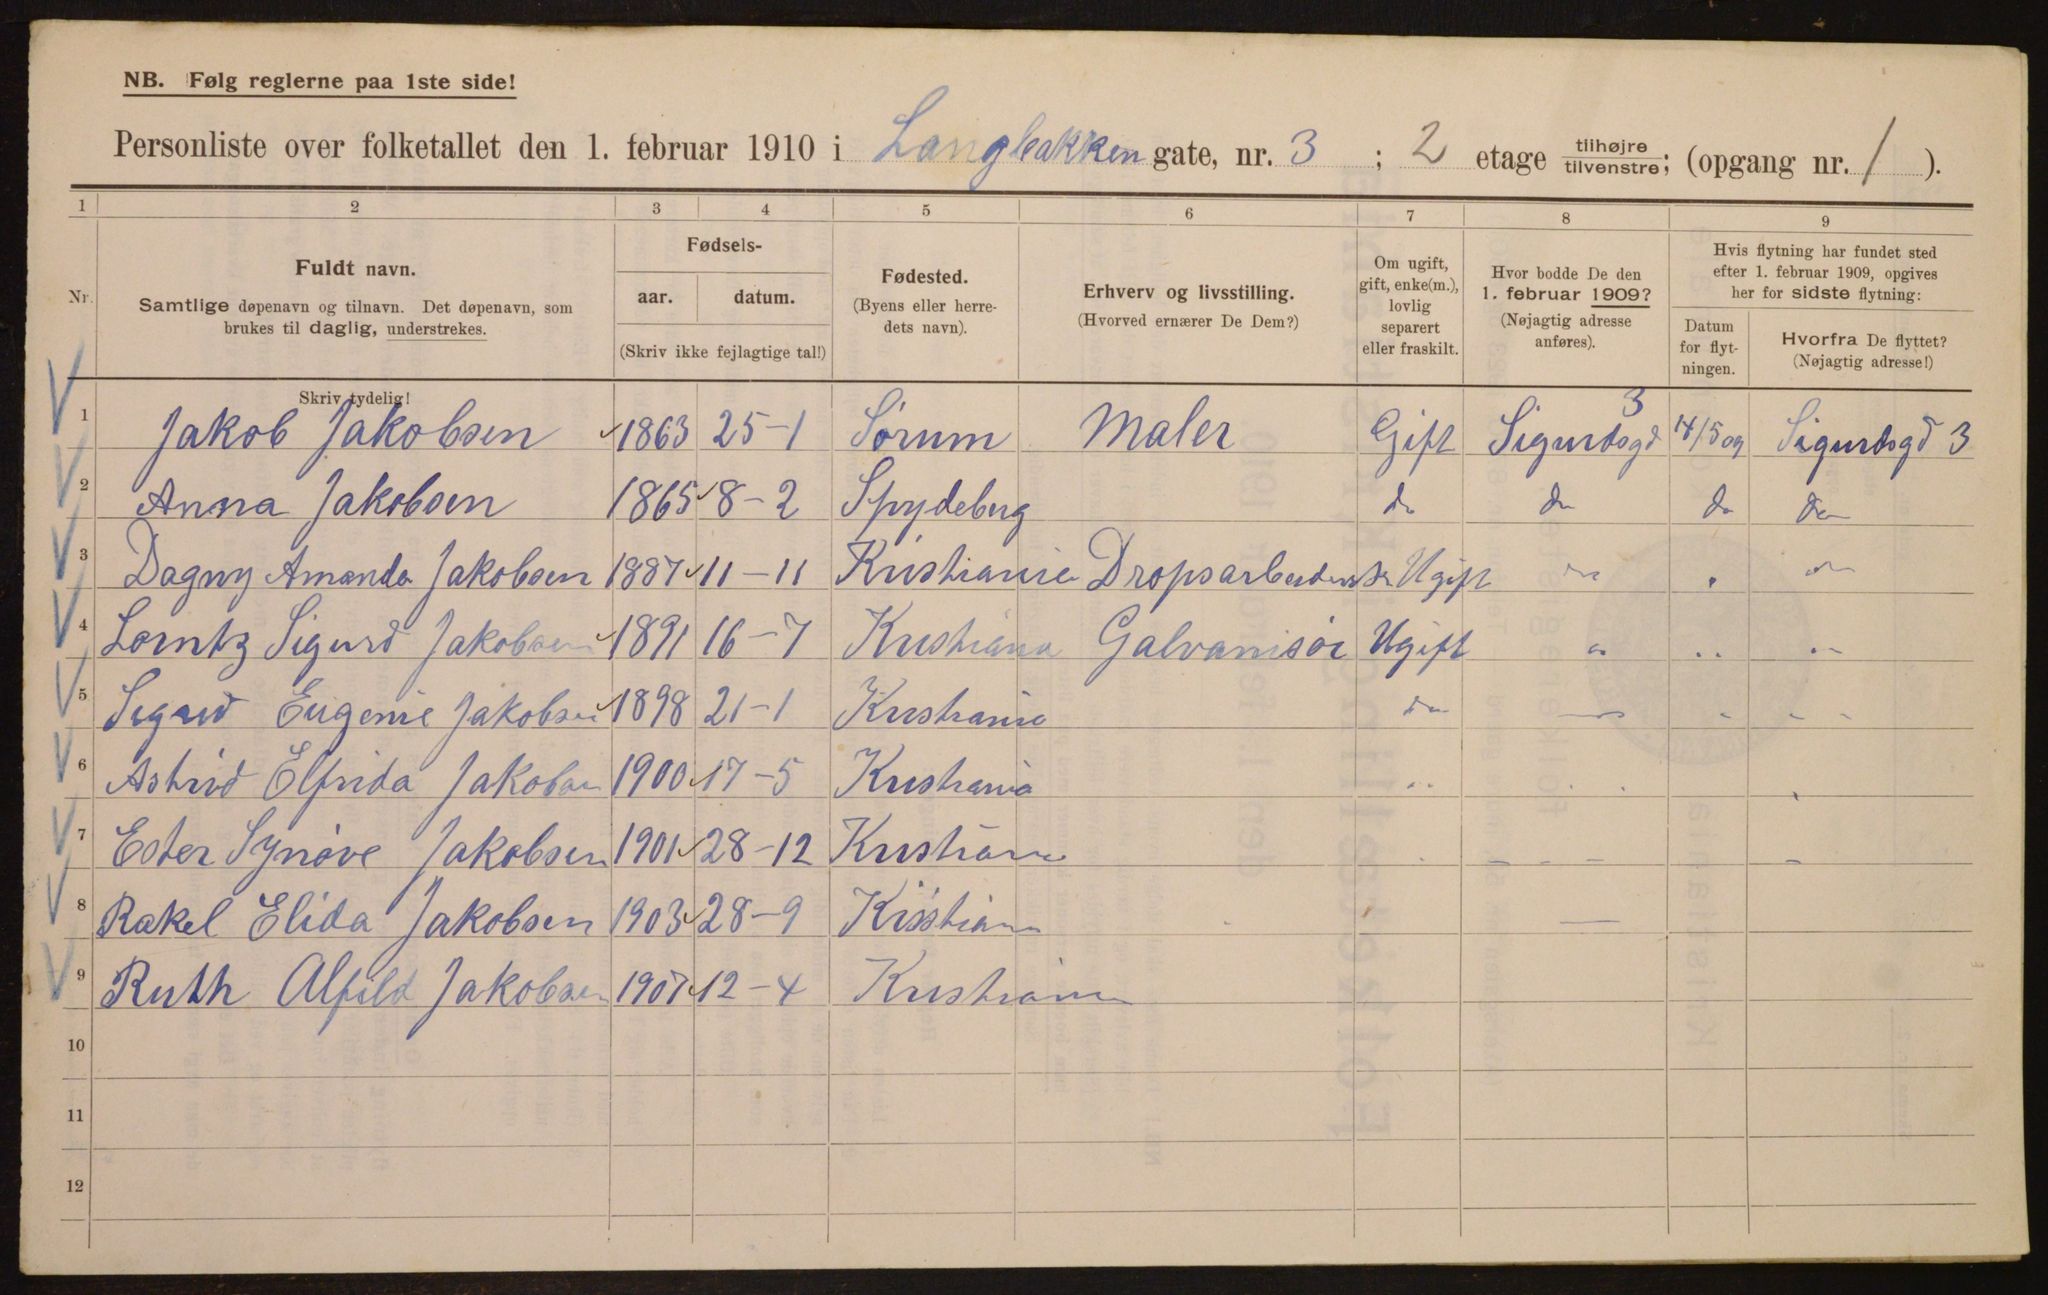 NB. Følg reglerne paa 1ste side!
Personliste over folketallet den 1. februar 1910 i Langbakken gate, nr. 3 ; 2 etage tilhøjre tilvenstre; (opgang nr. 1 ).
1 2 3 4 5 6 7 8 9
Nr. Fuldt navn. Samtlige døpenavn og tilnavn. Det døpenavn, som brukes til daglig, understrekes. Skriv tydelig!
Fødsels-
aar. datum.
(Skriv ikke fejlagtige tal!)
Fødested. (Byens eller herredets navn).
Erhverv og livsstilling. (Hvorved ernærer De Dem?)
Om ugift, gift, enke(m.), lovlig separert eller fraskilt.
Hvor bodde De den 1. februar 1909? (Nøjagtig adresse anføres).
Hvis flytning har fundet sted efter 1. februar 1909, opgives her for sidste flytning:
Datum for flytningen.
Hvorfra De flyttet? (Nøjagtig adresse!)
1 Jakob Jakobsen 1863 25-1 Sørum Maler Gift Sigurdsgd 3 14/5 09 Sigurdsgd 3
2 Anna Jakobsen 1865 8-2 Spydeberg do do do do
3 Dagny Amanda Jakobsen 1887 11-11 Kristiania Dropsarbeiderske Ugift do " do
4 Lorntz Sigurd Jakobsen 1891 16-7 Kristiania Galvanisør Ugift " " "
5 Sigrid Eugenie Jakobsen 1898 21-1 Kristiania do — " - -
6 Astrid Elfrida Jakobsen 1900 17-5 Kristiania " " "
7 Ester Synøve Jakobsen 1901 28-12 Kristiania - - - - -
8 Rakel Elida Jakobsen 1903 28-9 Kristiania —
9 Ruth Alfild Jakobsen 1907 12-4 Kristiania
10
11
12